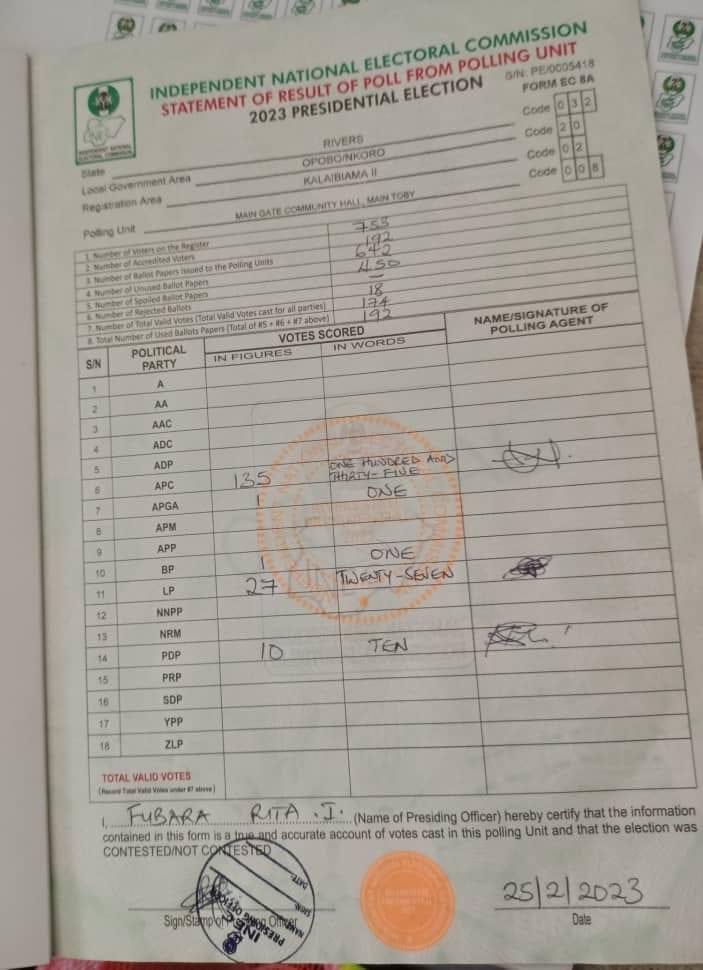 INDEPENDENT NATIONAL ELECTORAL COMMISSION
STATEMENT OF RESULT OF POLL FROM POLLING UNIT
2023 PRESIDENTIAL ELECTION
S/N: PE/0005418
FORM EC 8A
State RIVERS Code 0 3 2
Local Government Area OPOBO/NKORO Code 2 0
Registration Area KALAIBIAMA II Code 0 2
Polling Unit MAIN GATE COMMUNITY HALL, MAIN TOBY Code 0 0 8
1. Number of Voters on the Register 753
2. Number of Accredited Voters 192
3. Number of Ballot Papers Issued to the Polling Units 642
4. Number of Unused Ballot Papers 450
5. Number of Spoiled Ballot Papers –
6. Number of Rejected Ballots 18
7. Number of Total Valid Votes (Total Valid Votes cast for all parties) 174
8. Total Number of Used Ballots Papers (Total of #5 + #6 + #7 above) 192
S/N POLITICAL PARTY VOTES SCORED NAME/SIGNATURE OF POLLING AGENT
IN FIGURES IN WORDS
1 A
2 AA
3 AAC
4 ADC
5 ADP
6 APC 135 ONE HUNDRED AND THIRTY-FIVE
7 APGA 1 ONE
8 APM
9 APP
10 BP 1 ONE
11 LP 27 TWENTY-SEVEN
12 NNPP
13 NRM
14 PDP 10 TEN
15 PRP
16 SDP
17 YPP
18 ZLP
TOTAL VALID VOTES
(Record Total Valid Votes under #7 above)
I, FUBARA RITA .I. (Name of Presiding Officer) hereby certify that the information
contained in this form is a true and accurate account of votes cast in this polling Unit and that the election was
CONTESTED/NOT CONTESTED
25/2/2023
Sign/Stamp of Officer Date
INEC
PRESIDING OFFICER
NAME
SIGN.
DATE.